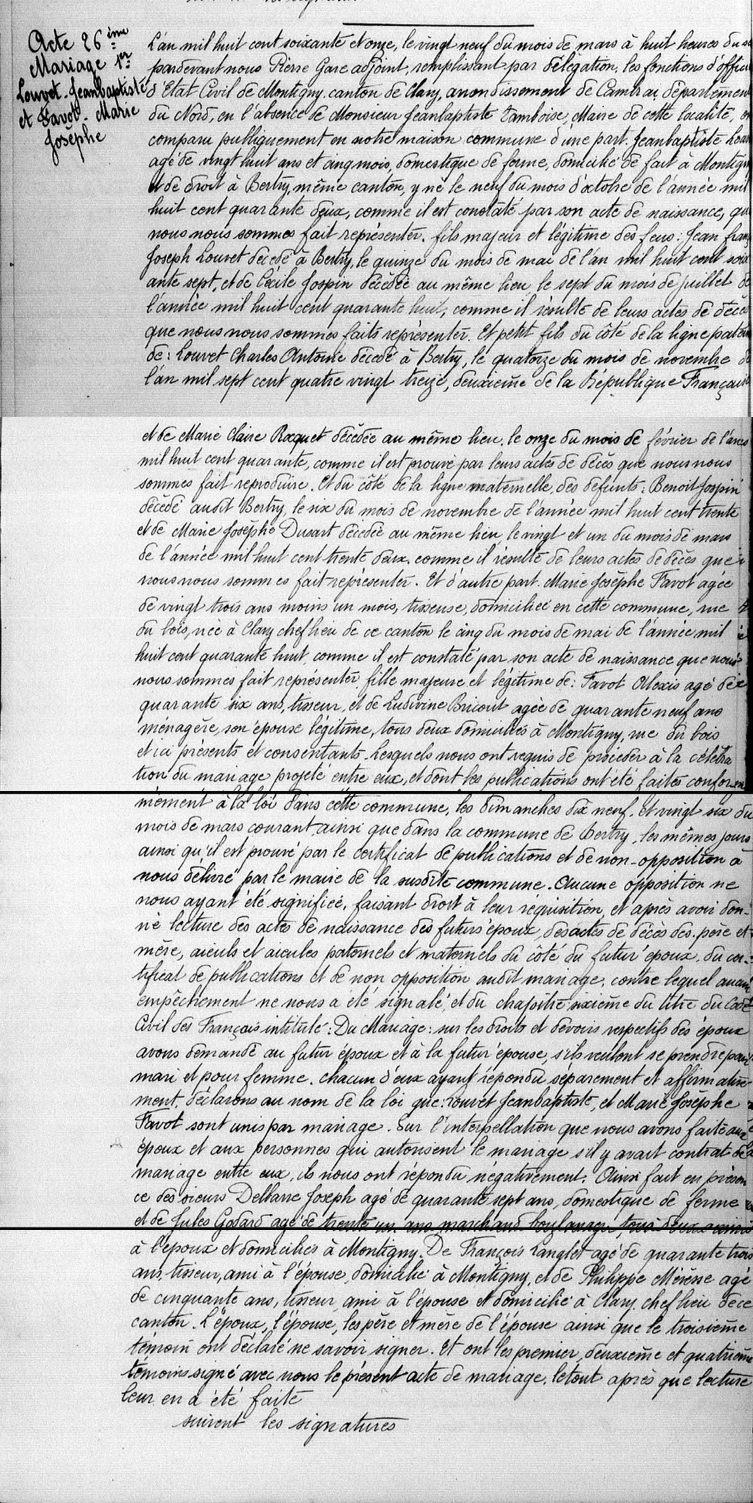 Acte 26ème
Mariage pr
Louvet Jeanbaptiste
et Favot Marie
Josèphe
L'an mil huit cent soixante et onze, le vingt neuf du mois de mars à huit heures du
pardevant nous Pierre Gave adjoint, remplissant par délégation, les fonctions d'offic
d'Etat Civil de Montigny, canton de Clary, arrondissement de Cambrai, département
du Nord, en l'absence de Monsieur Jeanbaptiste Tamboise, Maire de cette localité, on
comparu publiquement en notre maison commune d'une part. Jeanbaptiste Lou
agé de vingt huit ans et cinq mois, domestique de ferme, domicilié de fait à Montign
et de droit à Bertry, même canton, y né le neuf du mois d'octobre de l'année mil
huit cent quarante deux, comme il est constaté par son acte de naissance, qu
nous nous sommes fait représenter, fils majeur et légitime des feus : Jean franç
Joseph Louvet décédé à Bertry, le quinze du mois de mai de l'an mil huit cent soix
ante sept, et de Cécile Jospin décédée au même lieu le sept du mois de juillet de
l'année mil huit cent quarante huit, comme il résulte de leurs actes de décè
que nous nous sommes faits représenter. Et petit fils du côté de la ligne patern
de : Louvet Charles Antoine décédé à Bertry, le quatorze du mois de novembre de
l'an mil sept cent quatre vingt treize, deuxième de la République Français
et de Marie Claire Rocquet décédée au même lieu, le onze du mois de février de l'anné
mil huit cent quarante, comme il est prouvé par leurs actes de décès que nous nous
sommes fait reproduire. Et du côté de la ligne maternelle, des défunts : Benoit Jospin
décédé audit Bertry, le six du mois de novembre de l'année mil huit cent trente
et de Marie Josèphe Dusart décédée au même lieu le vingt et un du mois de mars
de l'année mil huit cent trente deux, comme il résulte de leurs actes de décès que
nous nous sommes fait représenter. Et d'autre part. Marie Josèphe Favot agée
de vingt trois ans moins un mois, tisseuse, domiciliée en cette commune, rue
du bois, née à Clary chef lieu de ce canton le cinq du mois de mai de l'année mil
huit cent quarante huit, comme il est constaté par son acte de naissance que nous
nous sommes fait représenter fille majeure et légitime de : Favot Alexis agé de
quarante six ans, tisseur, et de Ludivine Bricout agée de quarante neuf ans
ménagère, son épouse légitime, tous deux domiciliés à Montigny, rue du bois
et ici présents et consentants. Lesquels nous ont requis de procéder à la célébra
tion du mariage projeté entre eux, et dont les publications ont été faites confor
mément à la loi dans cette commune, les dimanches dix neuf, et vingt six du
mois de mars courant ainsi que dans la commune de Bertry, les mêmes jours
ainsi qu'il est prouvé par le certificat de publications et de non-opposition à
nous délivré par le maire de la susdite commune. Aucune opposition ne
nous ayant été signifiée, faisant droit à leur réquisition, et après avoir don-
né lecture des actes de naissance des futurs époux, des actes de décès des père et
mère, aieuls et aieules paternels et maternels du côté du futur époux, du cer-
tificat de publications et de non opposition audit mariage, contre lequel aucun
empêchement ne nous a été signalé, et du chapitre sixième du titre du Code
Civil des Français intitulé : Du Mariage : sur les droits et devoirs respectifs des époux
avons demandé au futur époux et à la futur épouse, s'ils veulent se prendre pour
mari et pour femme. chacun d'eux ayant répondu séparement et affirmative
ment, déclarons au nom de la loi que : Louvet Jeanbaptiste, et Marie Josèphe
Favot sont unis par mariage. Sur l'interpellation que nous avons faite aux
époux et aux personnes qui autorisent le mariage s'il y avait contrat de
mariage entre eux, ils nous ont répondu négativement. Ainsi fait en présen
ce des sieurs Delbarre Joseph agé de quarante sept ans, domestique de ferme
et de Jules Godard agé de trente un ans marchand boulanger, tous deux amis
à l'époux et domiciliés à Montigny. De François Langlet agé de quarante trois
ans, tisseur, ami à l'épouse, domicilié à Montigny, et de Philippe Méresse agé
de cinquante ans, tisseur, ami à l'épouse et domicilié à Clary, chef lieu de ce
canton. L'époux, l'épouse, les père et mère de l'épouse ainsi que le troisième
témoin ont déclaré ne savoir signer. Et ont les premier, deuxième et quatrième
témoins signé avec nous le présent acte de mariage, le tout après que lecture
leur en a été faite
suivent les signatures